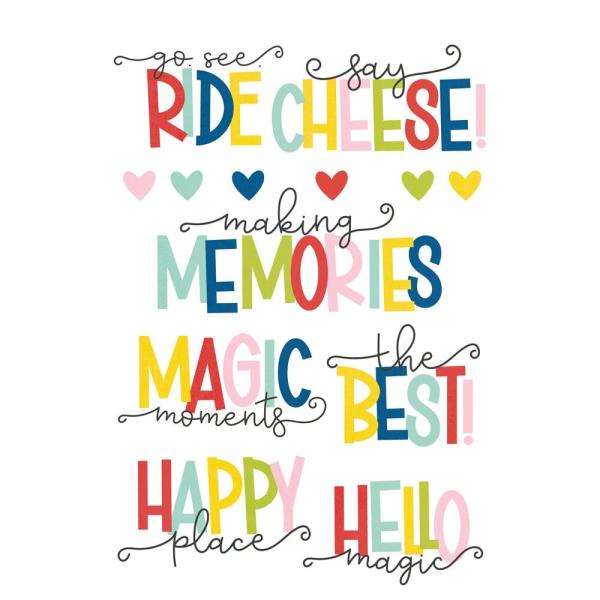 go. see.
RIDE
say
CHEESE!
making
MEMORIES
MAGIC
moments
the
BEST!
HAPPY
place
HELLO
magic